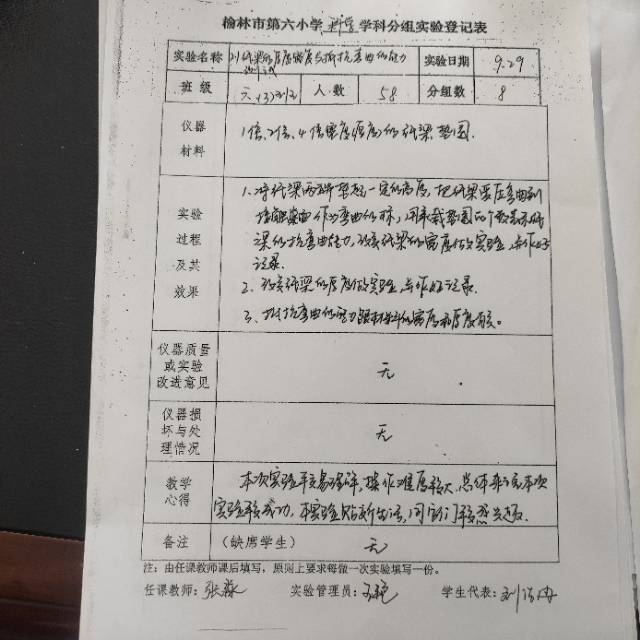 榆林市第六小学 科学 学科分组实验登记表
实验名称 纸梁的厚度宽度与抗弯曲的能力 测试 实验日期 9.29
班级 六(3) 人数 58 分组数 8
仪器材料 1倍、2倍、4倍宽度(厚度)的纸梁 垫圈.
实验过程及其效果
1.将纸梁两端架起一定的高度,把纸梁
作为弯曲的标,用承载垫圈的个数表示纸
梁的抗弯曲能力,改变纸梁的宽度做实验,并作好
记录.
2.改变纸梁的厚度做实验,并作好记录.
3、抵抗弯曲的能力跟材料的宽度和厚度有关。
仪器质量或实验改进意见 无
仪器损坏与处理情况 无
教学心得
本次实验 操作难度较大,总体来说本次
实验较成功.本实验贴近生活,同学们
备注 (缺席学生) 无
注:由任课教师课后填写,原则上要求每做一次实验填写一份。
任课教师:张淼 实验管理员: 学生代表:刘